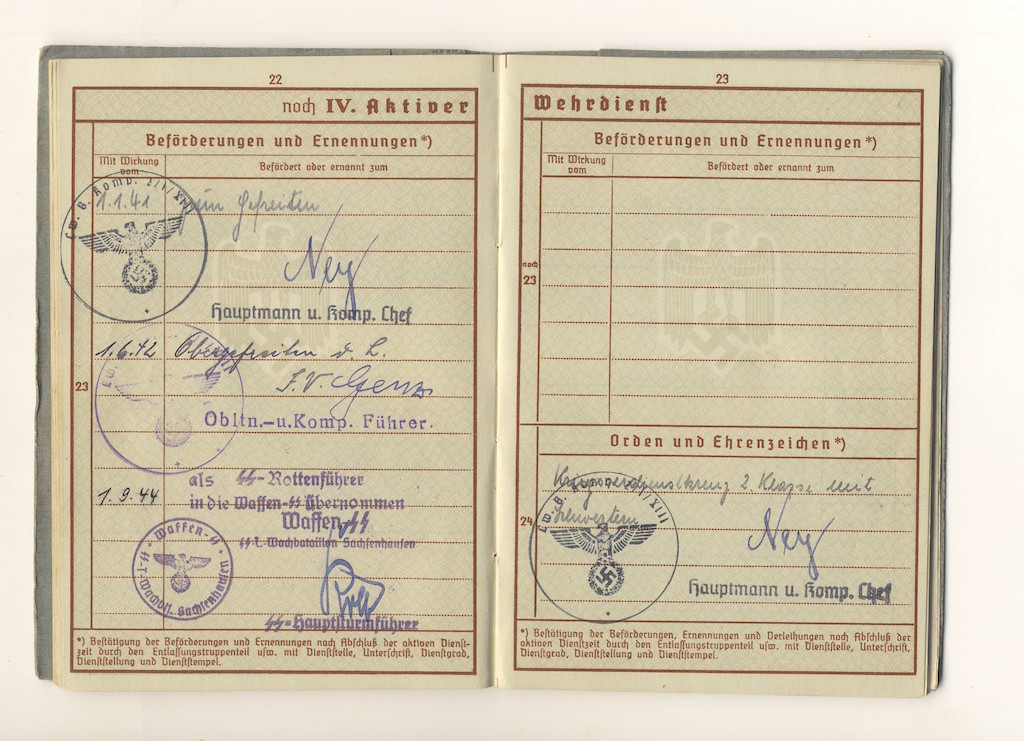 22
noch IV. Aktiver
Beförderungen und Ernennungen*)
Mit Wirkung vom
Befördert oder ernannt zum
1.1.41 zum Gefreiten
Ney
Hauptmann u. Komp. Chef
1.6.42 Obergefreiten d. L.
I.V. Genz
Obltn.-u.Komp. Führer.
23
1.9.44 als SS-Rottenführer
in die Waffen-SS übernommen
Waffen-SS
SS-T. Wachbataillon Sachsenhausen
Waffen-SS
SS-T-Wachbtl. Sachsenhausen
SS-Hauptsturmführer
*) Bestätigung der Beförderungen und Ernennungen nach Abschluß der aktiven Dienst-
zeit durch den Entlassungstruppenteil usw. mit Dienststelle, Unterschrift, Dienstgrad,
Dienststellung und Dienststempel.
23
Wehrdienst
Beförderungen und Ernennungen*)
Mit Wirkung vom
Befördert oder ernannt zum
noch
23
Orden und Ehrenzeichen*)
Kriegsverdienstkreuz 2. Klasse mit
Schwertern
24
Ney
Hauptmann u. Komp. Chef
*) Bestätigung der Beförderungen, Ernennungen und Verleihungen nach Abschluß der
aktiven Dienstzeit durch den Entlassungstruppenteil usw. mit Dienststelle, Unterschrift,
Dienstgrad, Dienststellung und Dienststempel.